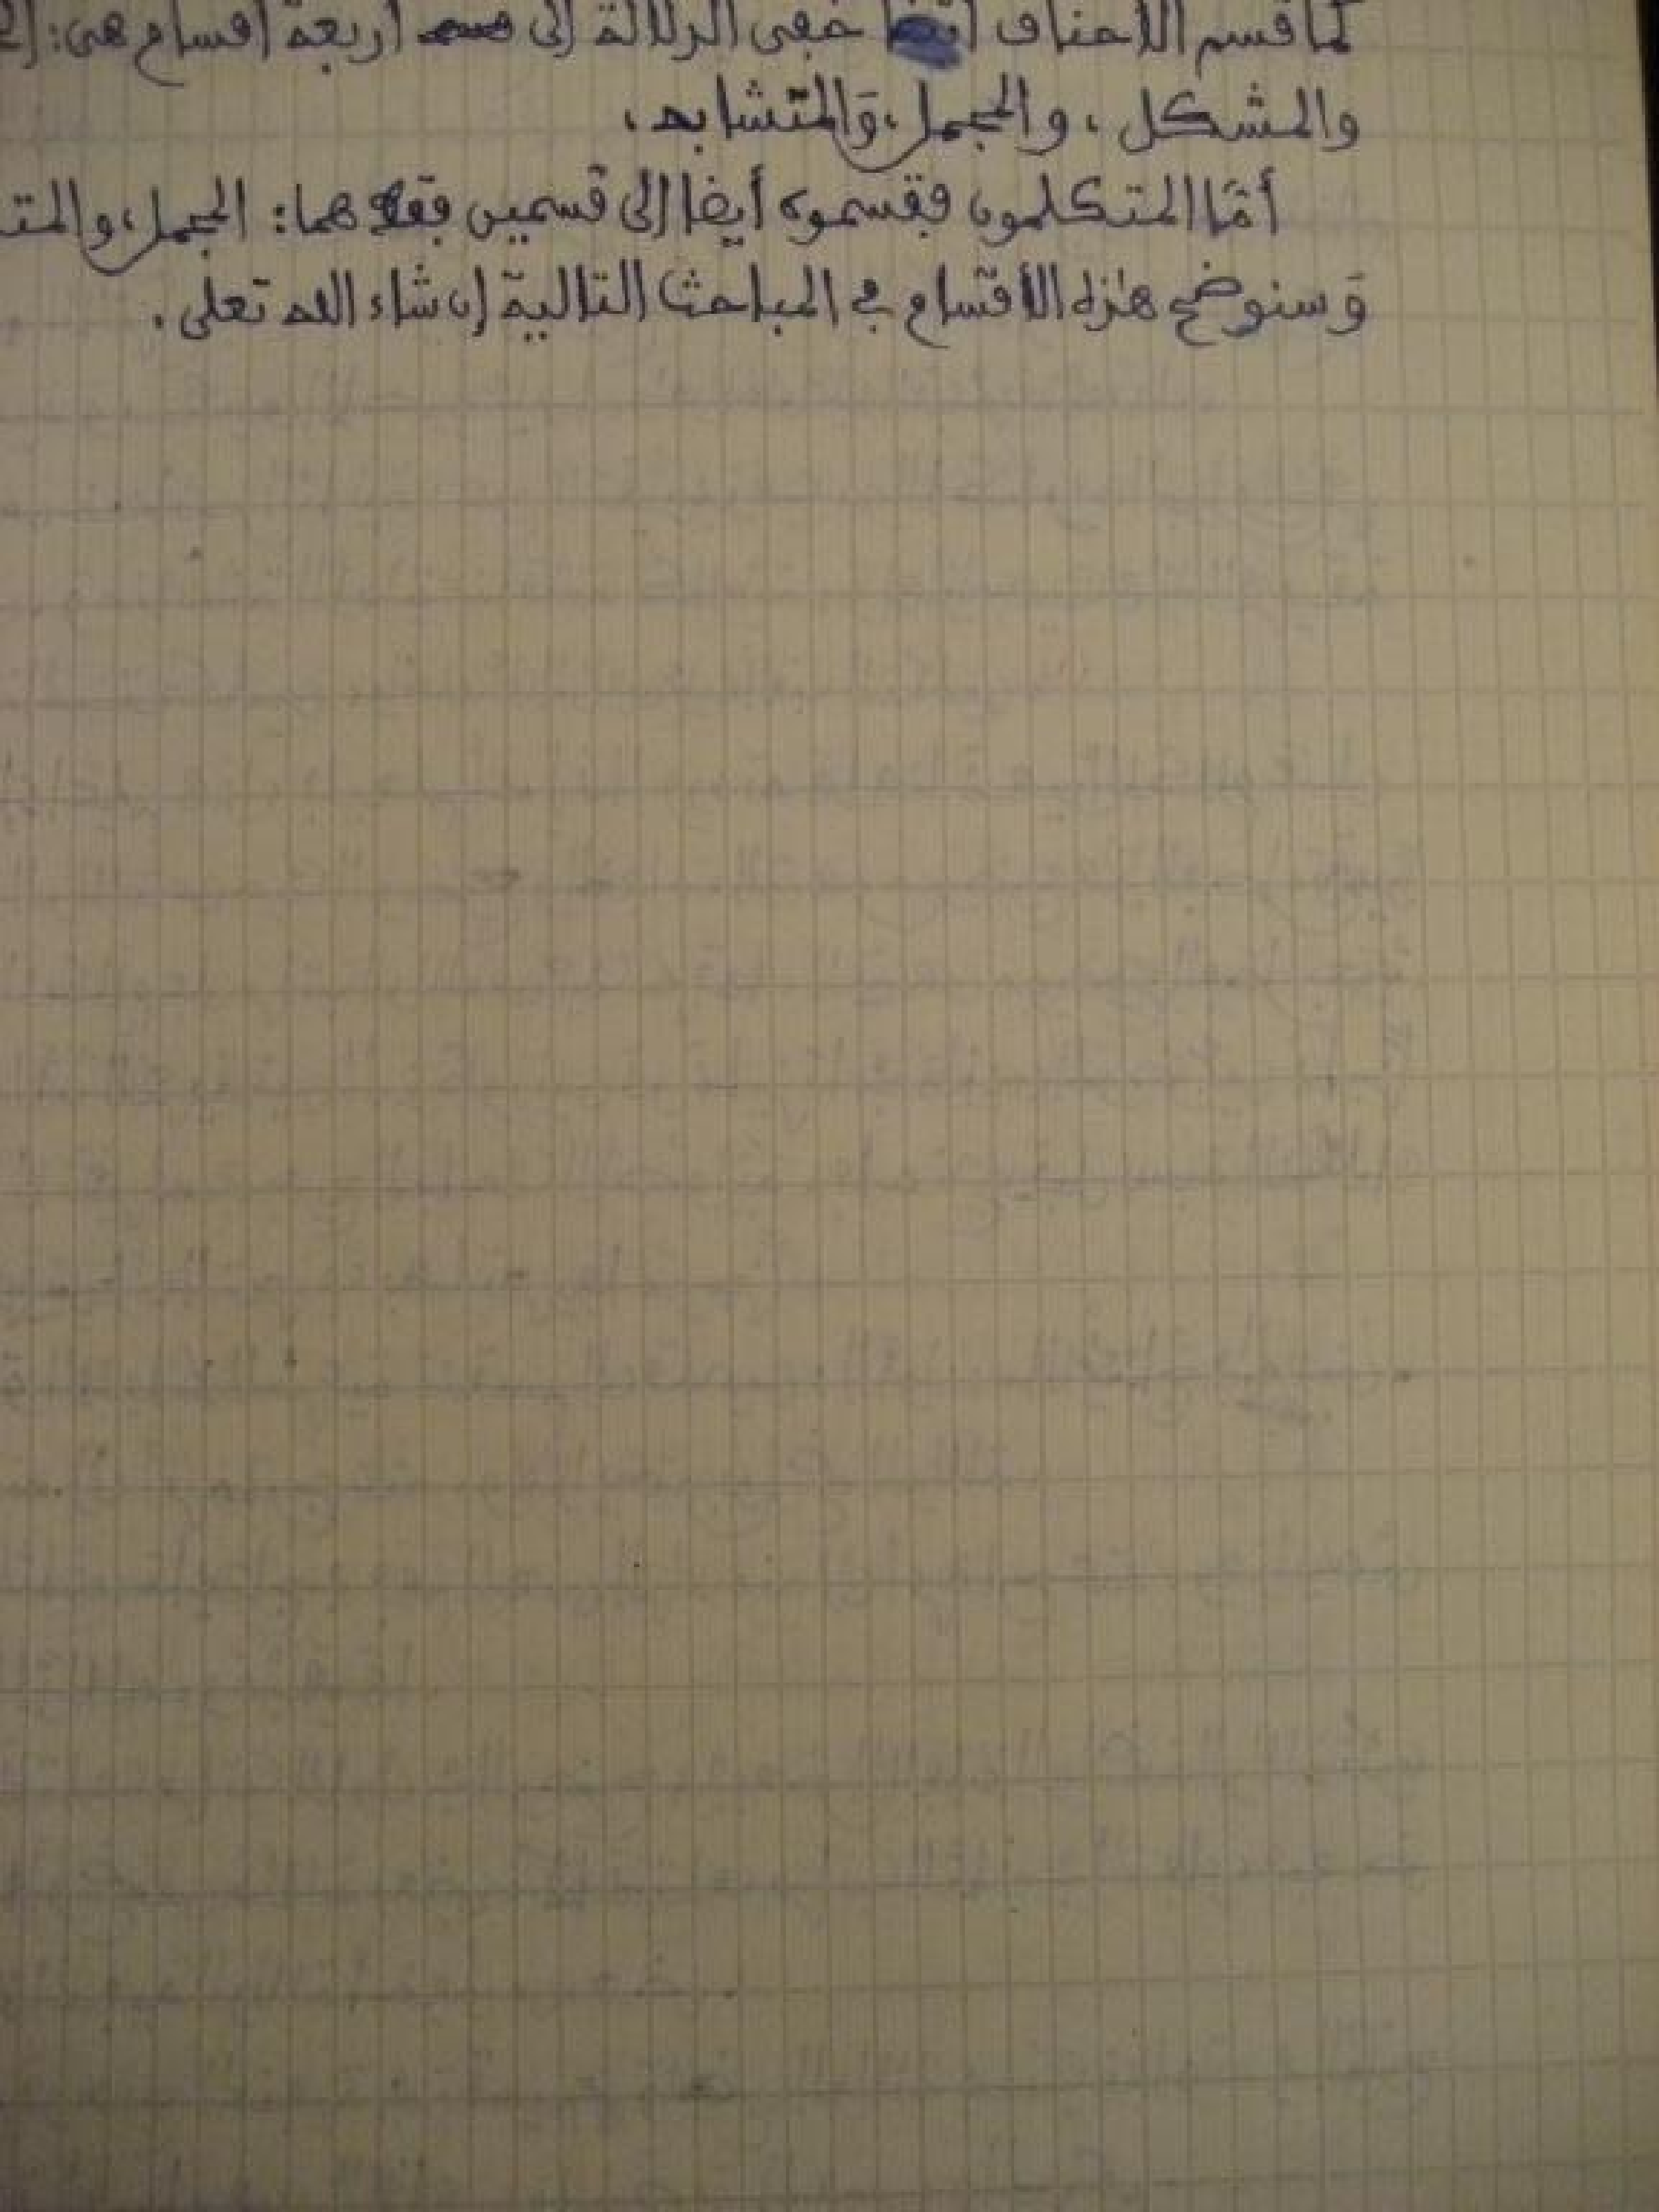 كما قسم الأحناف خفي الدلالة إلى أربعة أقسام هي:
والمشكل، والمجمل، وَالمتشابه.
أمّا المتكلمون فقسموه أيضا إلى قسمين فقط هما: المجمل، والمتـ
وَسنوضح هذه الأقسام في المباحث التالية إن شاء الله تعلى.